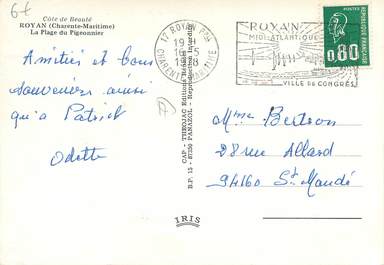 6f
Côte de Beauté
ROYAN (Charente-Maritime)
La Plage du Pigeonnier
Amitiés et bons
souvenirs ainsi
qu'a Patrick
Odette
CAP - THEOJAC Editions
B.P. 15 - 87350 PANAZOL - Reproduction Interdite
IRIS
17 ROYAN PPAL
CHARENTE MARITIME
ROYAN
MIDI-ATLANTIQUE
VILLE DE CONGRÈS
POSTES
0,80
REPUBLIQUE FRANÇAISE
Mme Bertron
28 rue Allard
94160 St Mandé